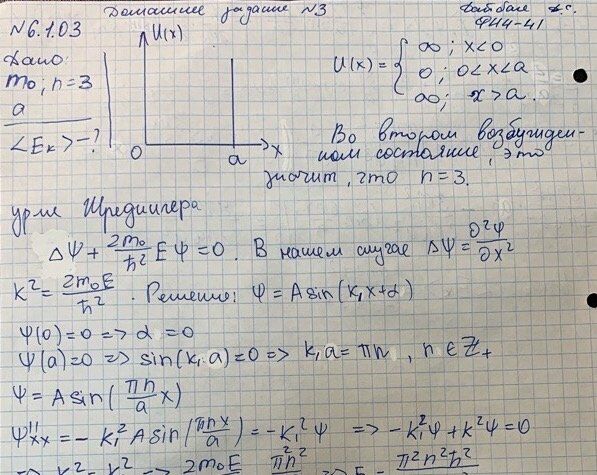 Домашнее задание №3
ФН4-41
№6.1.03
Дано:
m₀; n=3
a
<Eк> -?
U(x)
0 a x
U(x) = { ∞; x<0
0; 0<x<a
∞; x>a.
Во втором возбужден-
ном состояние, это
значит, что n=3.
урие Шредингера
ΔΨ + 2m₀/ħ² EΨ = 0. В нашем случае ΔΨ = ∂²Ψ/∂x²
k² = 2m₀E/ħ². Решение: Ψ = A sin(k₁x+α)
Ψ(0)=0 => α=0
Ψ(a)=0 => sin(k₁a)=0 => k₁a = πn, n ∈ Z₊
Ψ = A sin(πn/a x)
Ψ''xx = -k₁² A sin(πnx/a) = -k₁²Ψ => -k₁²Ψ + k²Ψ = 0